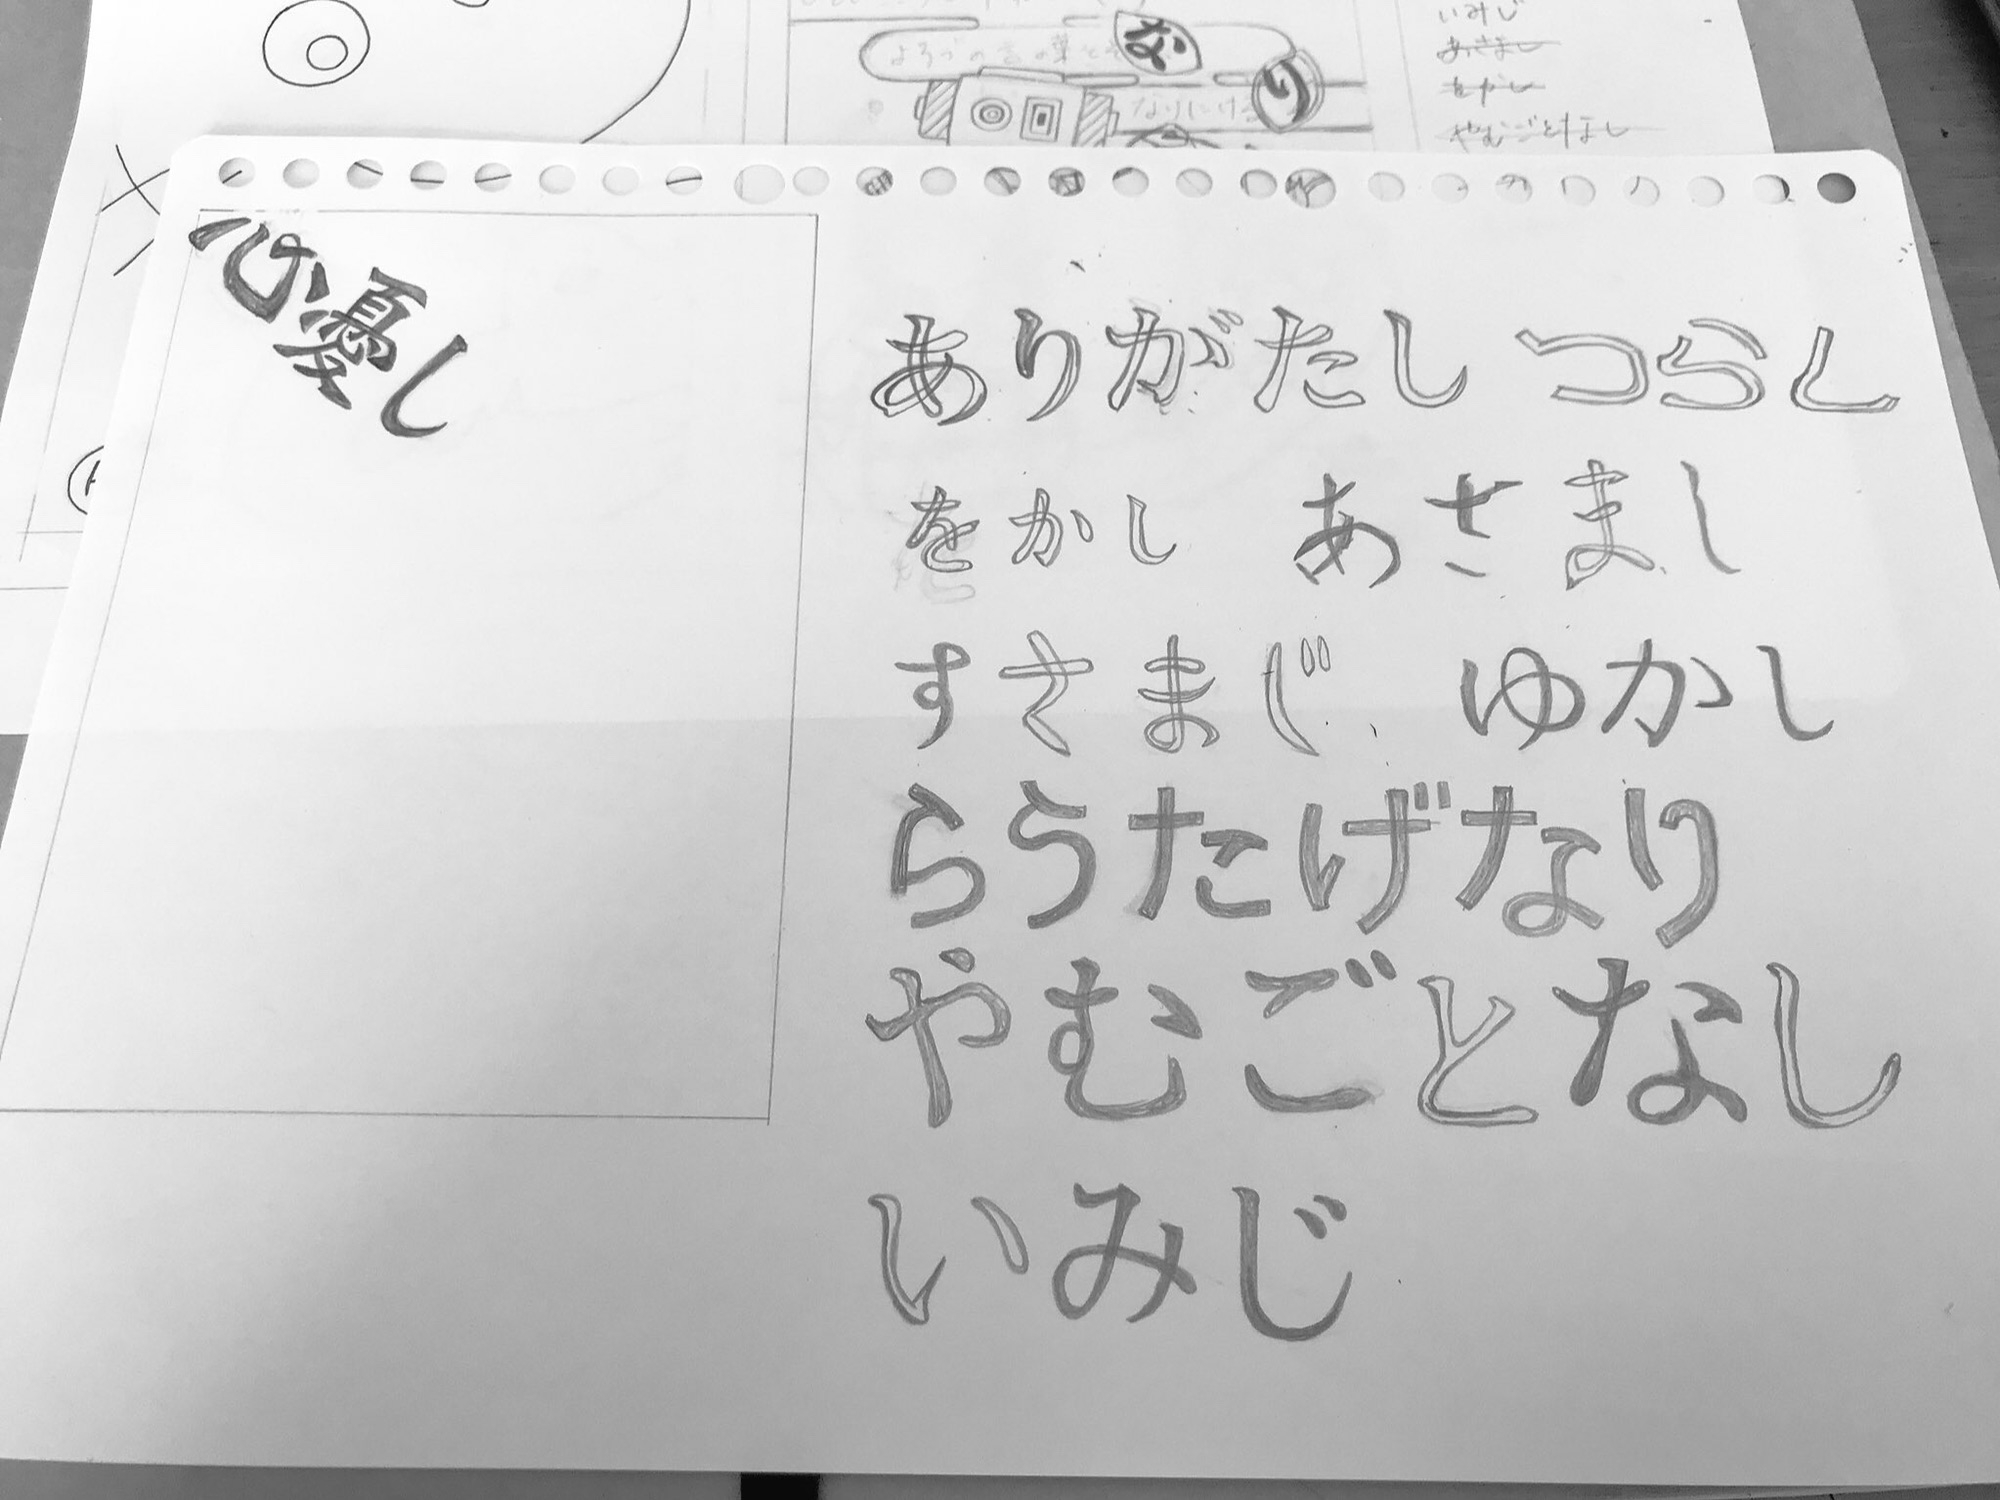 いみじ
あさまし
をかし
やむごとなし
よろづの言の葉とぞ
な
り
なりにけ
心憂し
ありがたし つらし
をかし あさまし
すさまじ ゆかし
らうたげなり
やむごとなし
いみじ